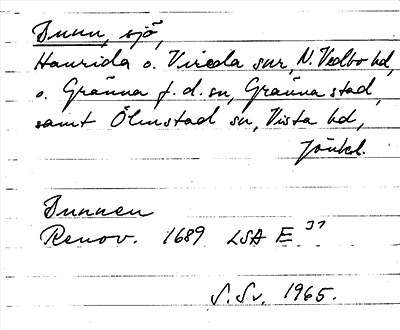 Bunn, sjö,
Haurida o. Vireda snr, N. Vedbo hd,
o. Gränna f. d. sn, Gränna stad,
samt Ölmstad sn, Vista hd,
Jönkl.
Bunnen
Renov. 1689 LSA E 37
S. Sv. 1965.